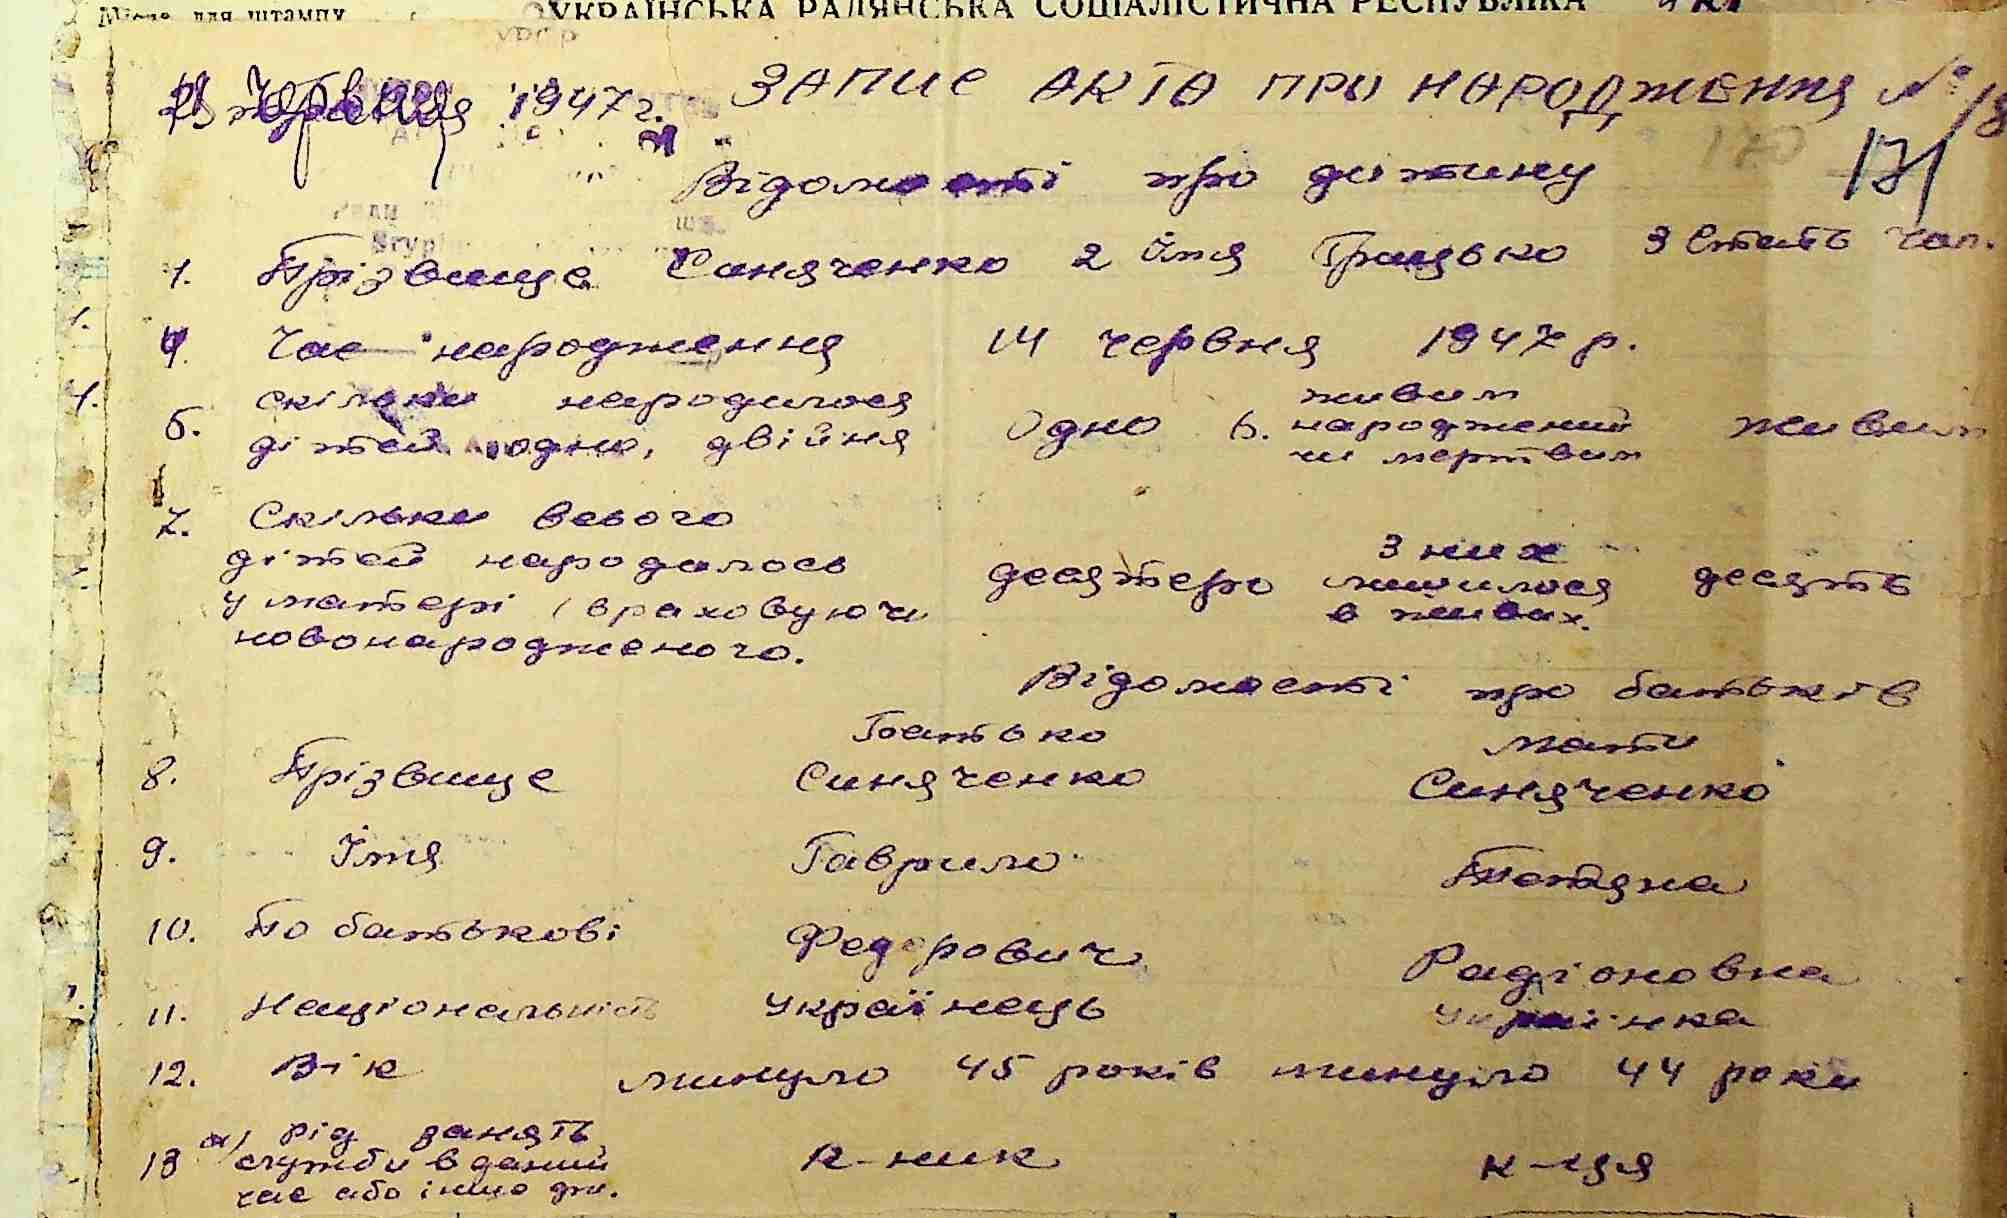 Місце для штампу УКРАЇНСЬКА РАДЯНСЬКА СОЦІАЛІСТИЧНА РЕСПУБЛІКА
червня 1947 г. ЗАПИС АКТА ПРО НАРОДЖЕННЯ № 18
171
Відомості про дитину
1. Прізвище Синяченко 2 Імя Грицько 3 Стать чол.
4. Час народження 14 червня 1947 р.
5. Скільки народилося дітей одно, двійня Одно 6. живим народжений чи мертвим живим
7. Скільки всього
дітей народилось десятеро З них лишилося в живих. десять
у матері (враховуючи
новонародженого.
Відомості про батьків
Батько Мати
8. Прізвище Синяченко Синяченко
9. Імя Гаврило Тетяна
10. По батькові Федорович Радіоновна
11. Національність Українець Українка
12. Вік минуло 45 років минуло 44 роки
13 а) рід занять
служби в даний к-ник к-ця
час або інше дж.